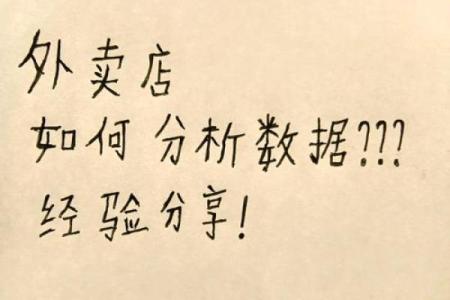 外卖店
如何分析数据???
经验分享!